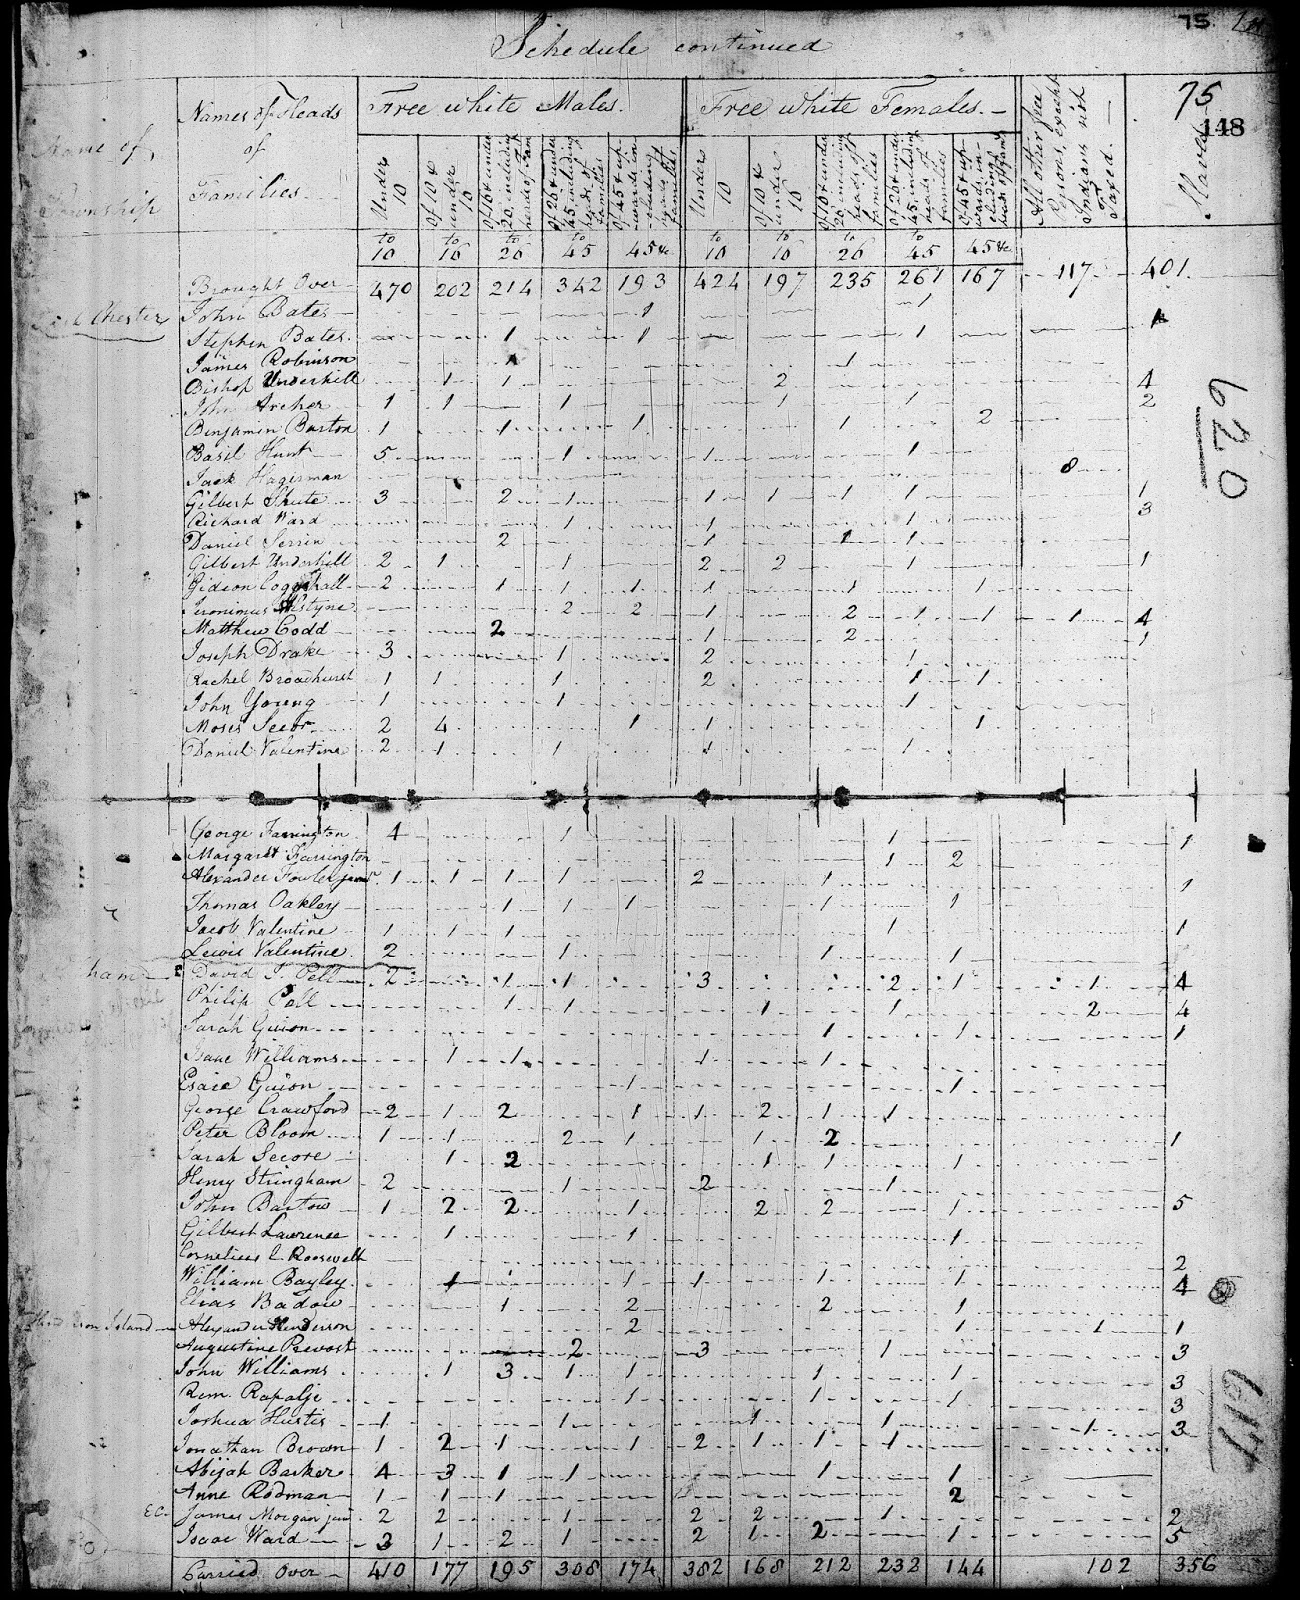 75
Schedule continued
75
148
Name of Township
Names of Heads of Families
Free white Males.
Free white Females.
All other free Persons, except Indians not Taxed.
Slaves
Under 10
Of 10 & under 16
Of 16 & under 26, including heads of families
Of 26 & under 45, including heads of families
Of 45 & upwards including heads of families
Under 10
Of 10 & under
Of 16 & under 26 including heads of families
Of 26 & under 45 including heads of families
Of 45 & upwards including heads of families
to 10 to 16 to 26 to 45 45 &c to 10 to 16 to 26 to 45 45 &c
Brought Over 470 202 214 342 193 424 197 235 261 167 117 401
Chester John Bates 1 1
Stephen Bates 1 1 1
James Robinson 1 1
Bishop Underhill 1 1 2 4
John Archer 1 1 1 1 1 2
Benjamin Barton 1 1 1 1 2
Basil Hunt 5 1 1 1
Jack Hagerman 8
Gilbert Shute 3 2 1 1 1 1 1 1
Richard Ward 1 1 1 3
Daniel Serrin 2 1 1 1
Gilbert Underhill 2 1 1 2 2 1 1
Gideon Coggshall 2 1 1 1 1 1 1
Jeronimus Alstyne 2 2 1 2 1 1 1 4
Matthew Codd 2 1 2 1
Joseph Drake 3 1 2 1
Rachel Broadhurst 1 1 1 2 1 1
John Young 1 1 1
Moses Secor 2 4 1 1 1
Daniel Valentine 2 1 1 1 1
620
George Farrington 4 1 1 1
Margaret Farrington 1 2
Alexander Fowler junr 1 1 1 1 2 1 1
Thomas Oakley 1 1 1 1 1
Jacob Valentine 1 1 1 1 1
Lewis Valentine 2 1 1 1
ham David J. Pell 2 1 1 3 2 1 1 4
Philip Pell 1 1 1 1 2 4
Sarah Guion 1 1 1
Isaac Williams 1 1 1 1
Esaie Guion 1 1
George Crawford 2 1 2 1 1 2 1 1
Peter Bloom 1 1 2 1 1 2 1
Sarah Secore 1 2 1 1 1
Henry Stringham 2 1 2 1
John Bartow 1 2 2 1 2 2 1 5
Gilbert Lawrence 1 1 1
Cornelius C. Roosevelt 2
William Bayley 1 1 1 1 1 4
Elias Badow 1 2 2 1
Island Alexander Henderson 2 1 1 1
Augustine Prevost 2 3 1 3
John Williams 1 3 1 1 1 1 3
Rem Rapalje 1 1 1 3
Joshua Hustis 1 1 1 1 1 3
Jonathan Brown 1 2 1 1 2 1 1 1
Abijah Barker 4 3 1 1 1 1
Anne Rodman 1 1 1 2
EC. James Morgan jun 2 2 1 2 2 1 2
Isaac Ward 3 1 2 1 2 1 2 1 5
617
Carried Over 410 177 195 308 174 382 168 212 232 144 102 356